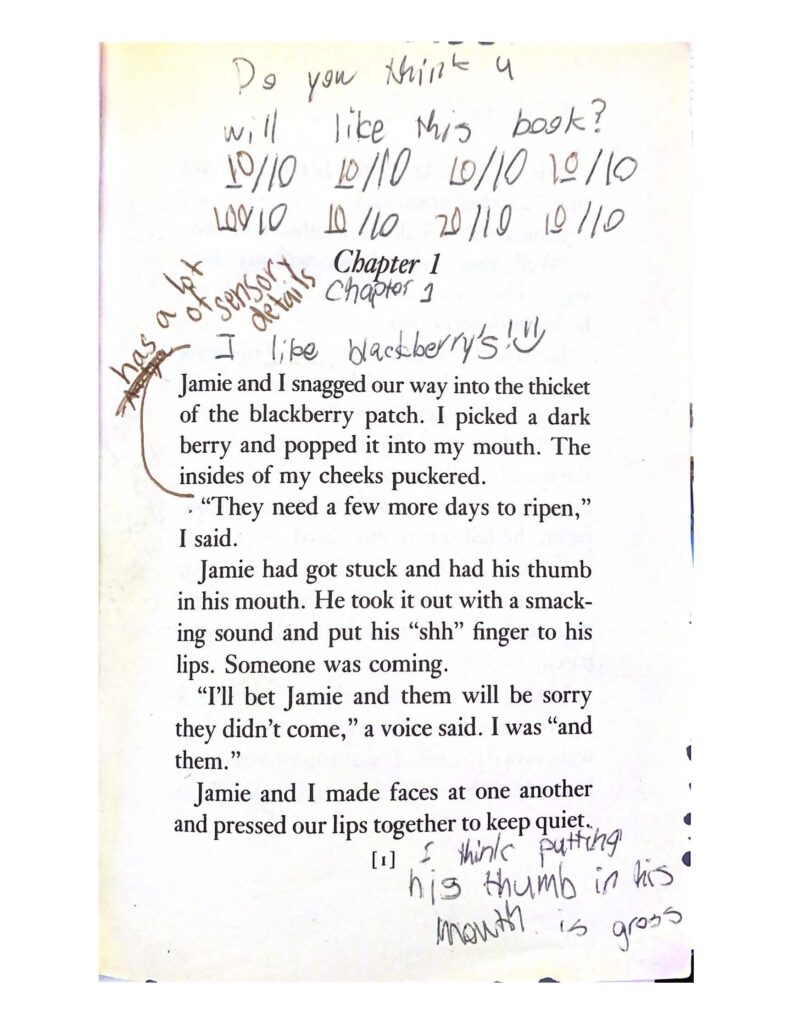 Do you think u
will like this book?
10/10 10/10 10/10 10/10
100/10 10/10 20/10 10/10
Chapter 1
Chapter 1
has a lot
of sensory
details
I like blackberry's! :)
Jamie and I snagged our way into the thicket
of the blackberry patch. I picked a dark
berry and popped it into my mouth. The
insides of my cheeks puckered.
“They need a few more days to ripen,”
I said.
Jamie had got stuck and had his thumb
in his mouth. He took it out with a smack-
ing sound and put his “shh” finger to his
lips. Someone was coming.
“I’ll bet Jamie and them will be sorry
they didn’t come,” a voice said. I was “and
them.”
Jamie and I made faces at one another
and pressed our lips together to keep quiet.
[1]
I think putting
his thumb in his
mouth is gross